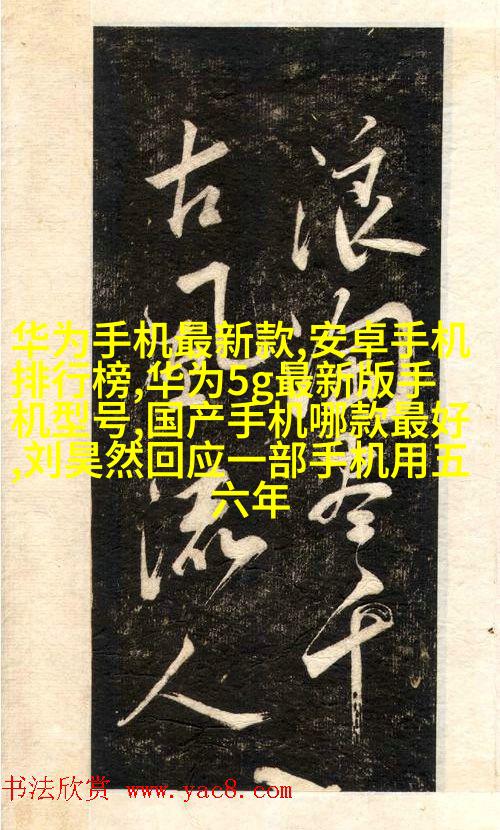 浪淘尽千
古风流人
华为手机最新款,安卓手机
排行榜,华为5g最新版手
机型号,国产手机哪款最好
,刘昊然回应一部手机用五
六年
书法欣赏 www.yac8.com